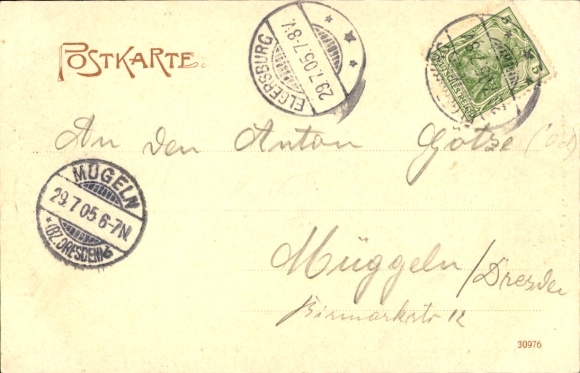 POSTKARTE.
ELGERSBURG
29.7.05.7-8V.
5
An den Anton Götze
MÜGELN
29.7.05 6-7N
*(BZ.DRESDEN)b
Müggeln/Dresden
Bismarkstr 12
30976